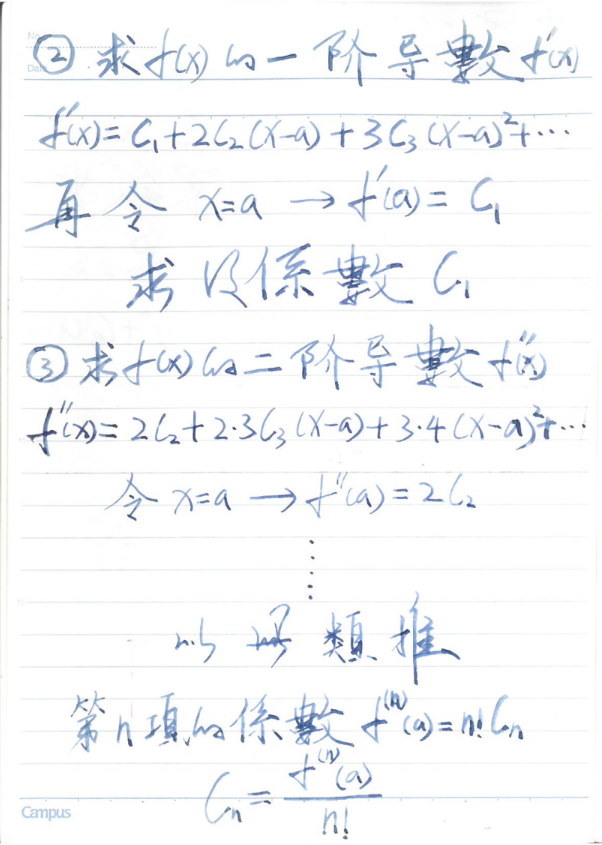 No.
② 求f(x)的一阶导數f'(x)
f'(x)= C₁+2C₂(x-a)+3C₃(x-a)²+…
再令 x=a → f'(a)= C₁
求得係數 C₁
③ 求f(x)的二阶导數f''(x)
f''(x)= 2C₂+2·3C₃(x-a)+3·4(x-a)²+…
令 x=a → f''(a)=2C₂
⋮
以此類推
第n項的係數 f⁽ⁿ⁾(a)=n!Cₙ
Cₙ= f⁽ⁿ⁾(a)
n!
Campus